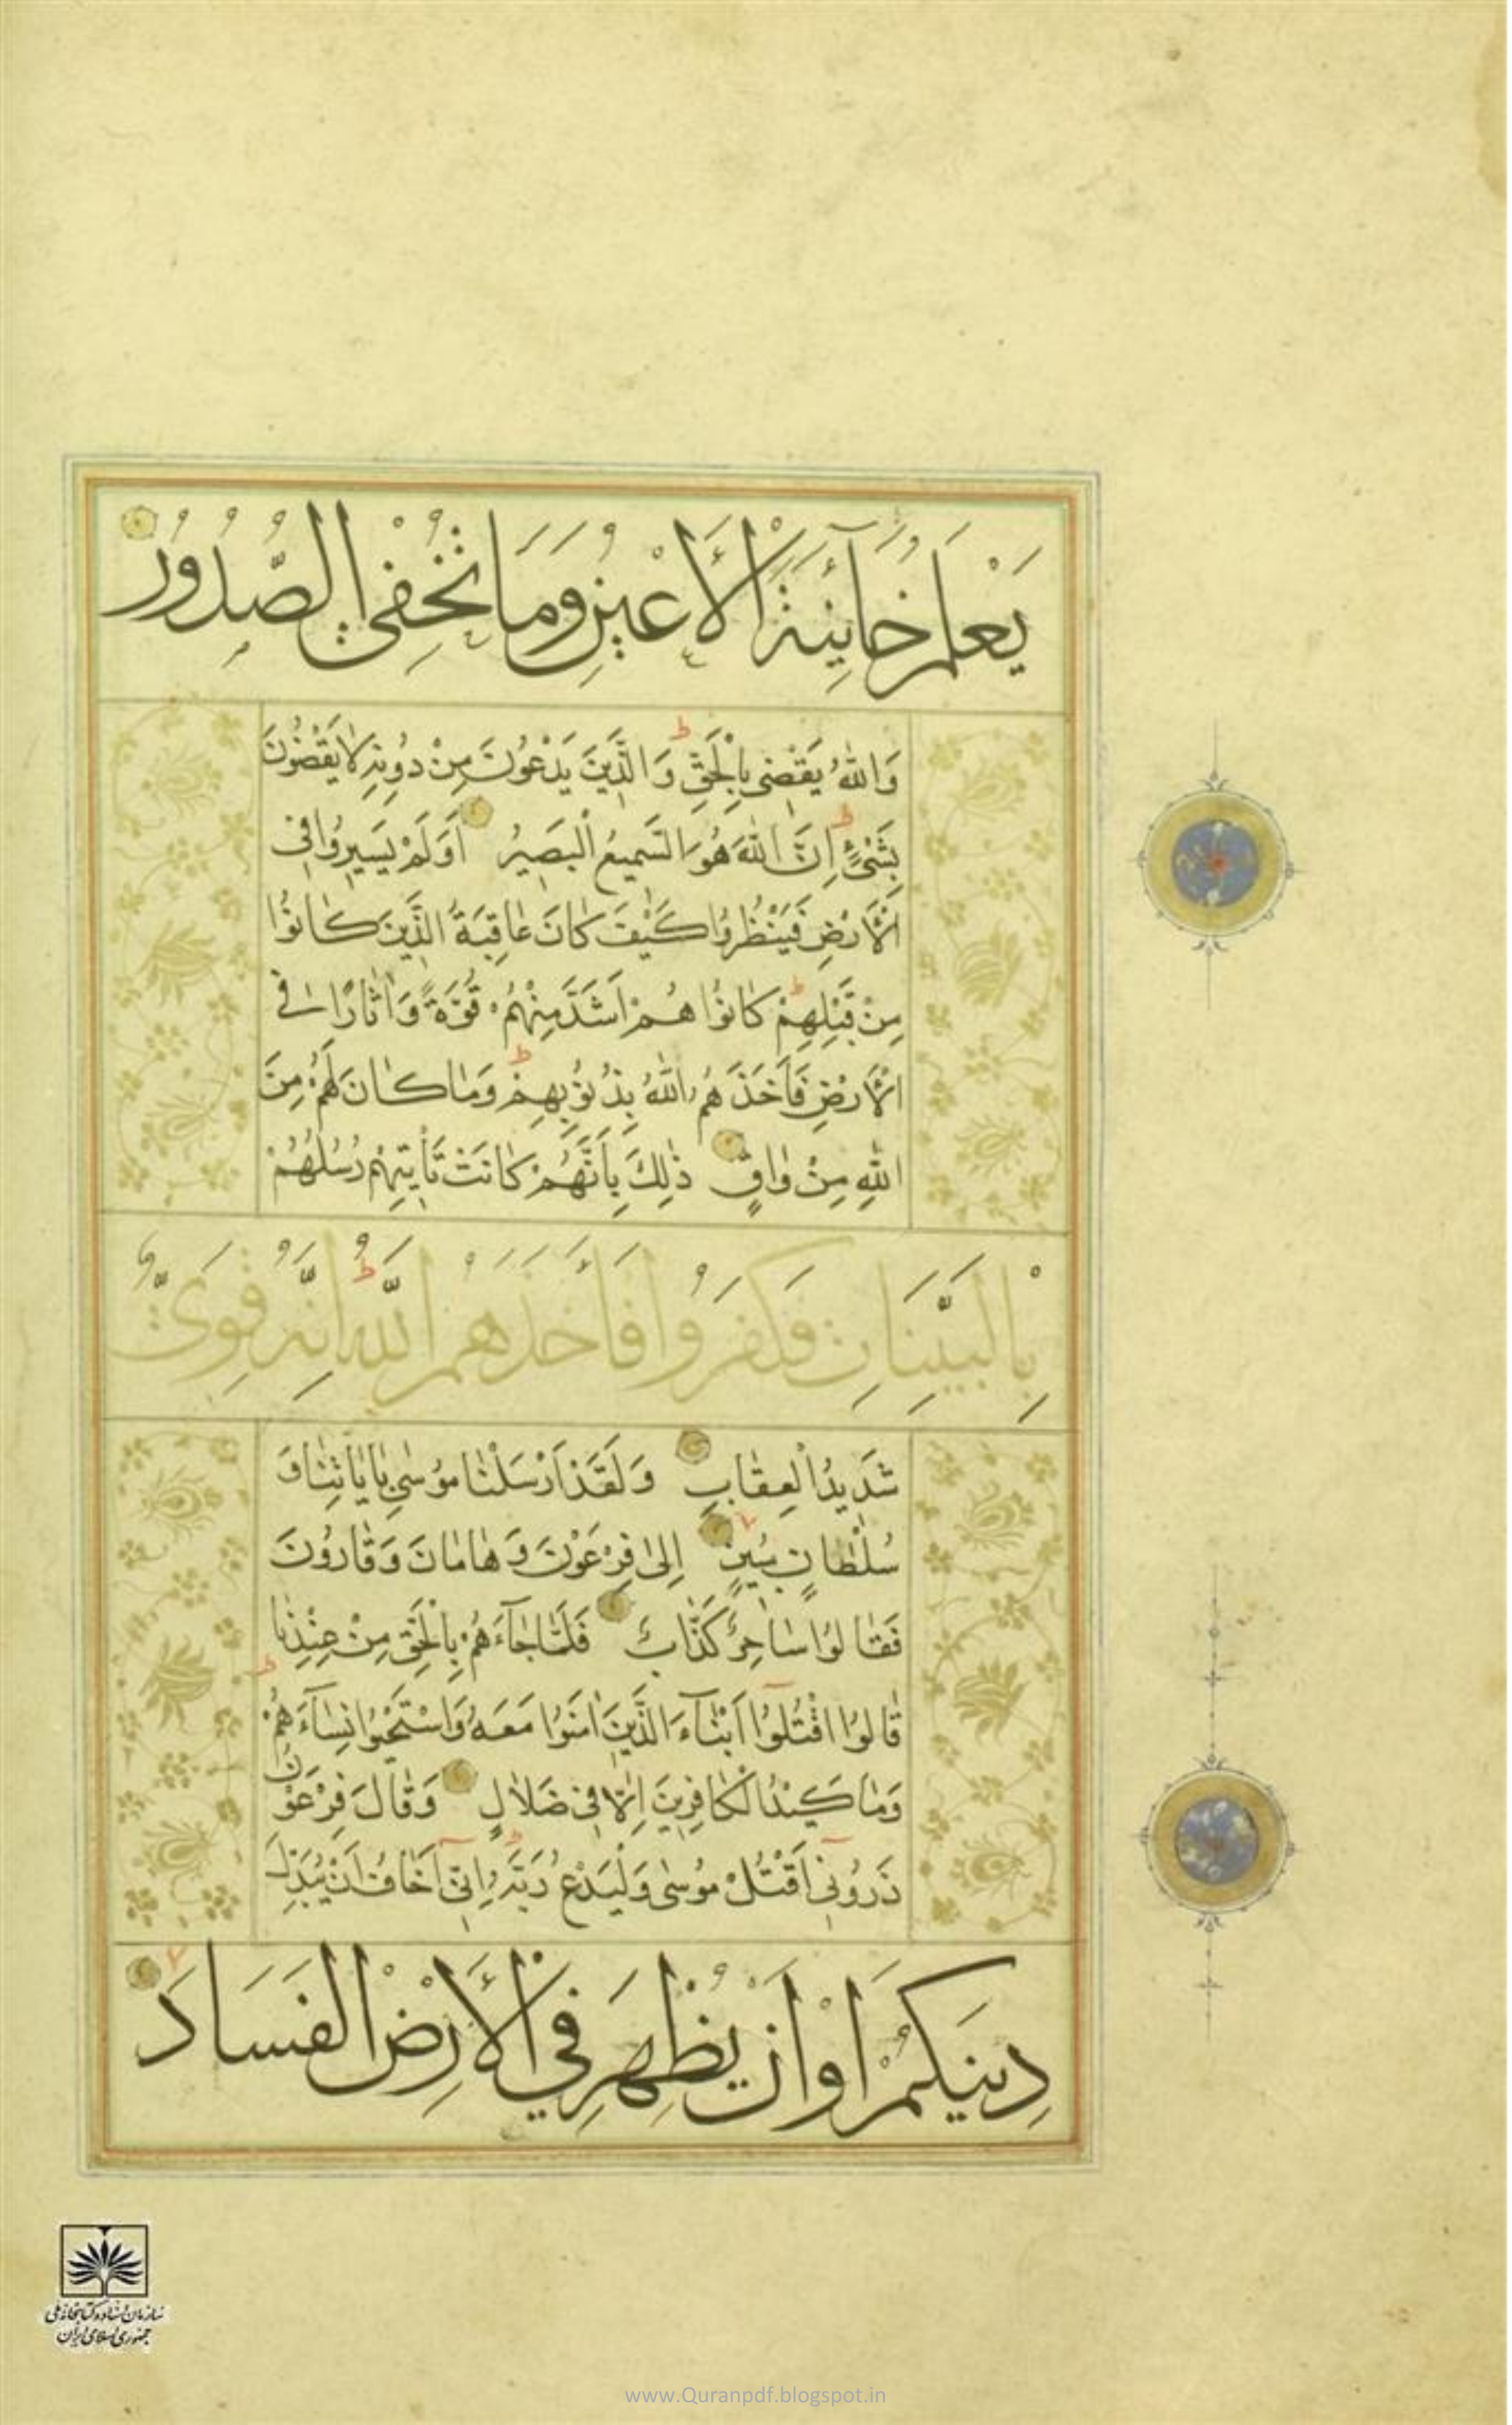 يَعْلَمُ خَآئِنَةَ الْأَعْيُنِ وَمَا تُخْفِي الصُّدُورُ
وَاللّٰهُ يَقْضِي بِالْحَقِّ وَالَّذِينَ يَدْعُونَ مِنْ دُونِهِ لَا يَقْضُونَ
بِشَيْءٍ إِنَّ اللّٰهَ هُوَ السَّمِيعُ الْبَصِيرُ أَوَلَمْ يَسِيرُوا فِي
الْأَرْضِ فَيَنْظُرُوا كَيْفَ كَانَ عَاقِبَةُ الَّذِينَ كَانُوا
مِنْ قَبْلِهِمْ كَانُوا هُمْ أَشَدَّ مِنْهُمْ قُوَّةً وَاٰثَارًا فِي
الْأَرْضِ فَأَخَذَهُمُ اللّٰهُ بِذُنُوبِهِمْ وَمَا كَانَ لَهُمْ مِنَ
اللّٰهِ مِنْ وَاقٍ ذٰلِكَ بِأَنَّهُمْ كَانَتْ تَأْتِيهِمْ رُسُلُهُمْ
بِالْبَيِّنَاتِ فَكَفَرُوا فَأَخَذَهُمُ اللّٰهُ إِنَّهُ قَوِيٌّ
شَدِيدُ الْعِقَابِ وَلَقَدْ أَرْسَلْنَا مُوسٰى بِاٰيَاتِنَا وَ
سُلْطَانٍ مُبِينٍ إِلٰى فِرْعَوْنَ وَهَامَانَ وَقَارُونَ
فَقَالُوا سَاحِرٌ كَذَّابٌ فَلَمَّا جَآءَهُمْ بِالْحَقِّ مِنْ عِنْدِنَا
قَالُوا اقْتُلُوآ أَبْنَآءَ الَّذِينَ اٰمَنُوا مَعَهُ وَاسْتَحْيُوا نِسَآءَهُمْ
وَمَا كَيْدُ الْكَافِرِينَ إِلَّا فِي ضَلَالٍ وَقَالَ فِرْعَوْنُ
ذَرُونِيٓ أَقْتُلْ مُوسٰى وَلْيَدْعُ رَبَّهُ إِنِّيٓ أَخَافُ أَنْ يُبَدِّلَ
دِينَكُمْ أَوْ أَنْ يُظْهِرَ فِي الْأَرْضِ الْفَسَادَ
سازمان اسناد و کتابخانه ملی
جمهوری اسلامی ایران
www.Quranpdf.blogspot.in